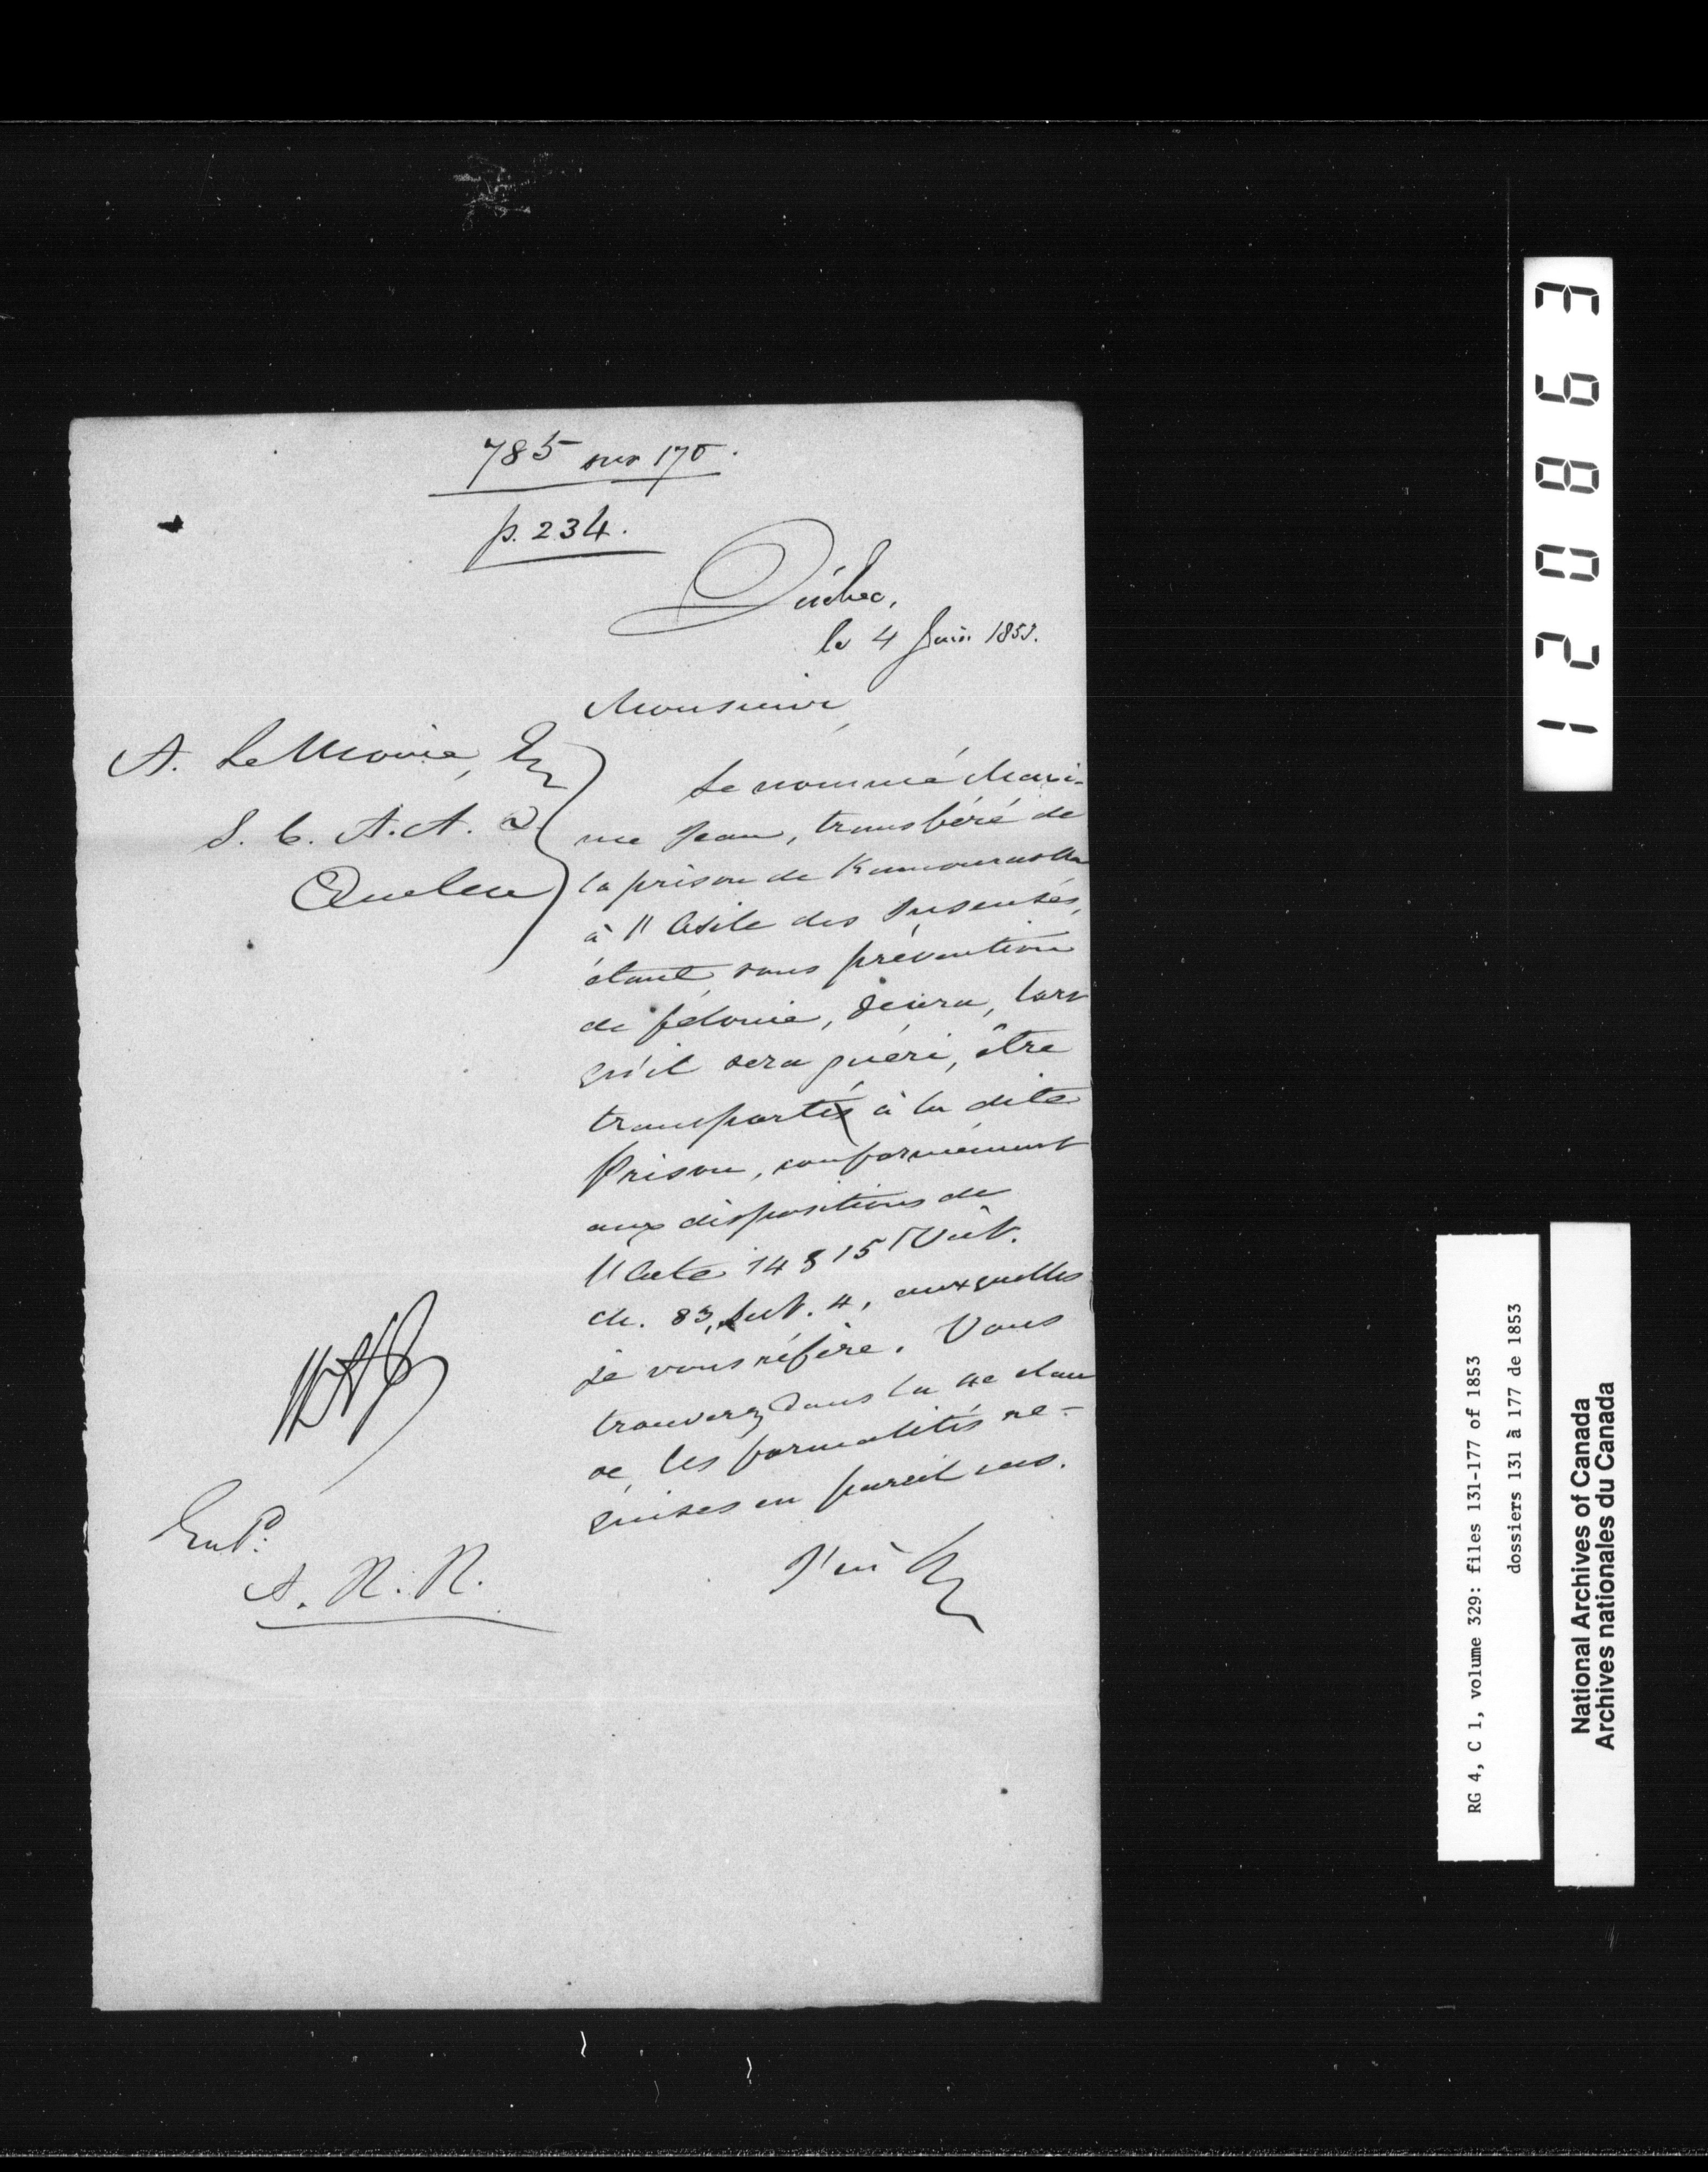 785 sur 170.
p. 234.
Québec,
le 4 Juin 1853.
Monsieur,
A. LeMoine,
S. C. A. A.
Quebec
Le nommé Maxi-
me Jean, transféré de
la prison de Kamouraska
à l'Asile des Insensés,
étant sous prévention
de félonie, devra, lors
qu'il sera guéri, être
transporté à la dite
Prison, conformément
aux dispositions de
l'Acte 14 & 15 Vict.
ch. 83, Sect. 4, auxquelles
je vous réfère. Vous
trouverez dans la 4e clau
se, les formalités re-
quises en pareil cas.
J'ai
Entd.
A. R. R.
120863
RG 4, C 1, volume 329: files 131-177 of 1853
dossiers 131 à 177 de 1853
National Archives of Canada
Archives nationales du Canada